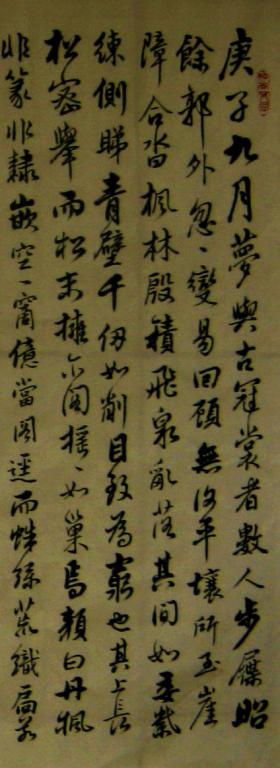 庚子九月夢與古冠裳者數人步屧昭
餘郭外忽〻變易回顧無復平壤所至崖
障合沓楓林殷積飛泉亂落其間如委紫
練側睇青壁千仞如削目致為窮也其上長
松密舉而松末擁小閣搖〻如巢焉顏曰丹楓
非篆非隸嵌空一窗億當閣逕而蛛絲荒織扃若